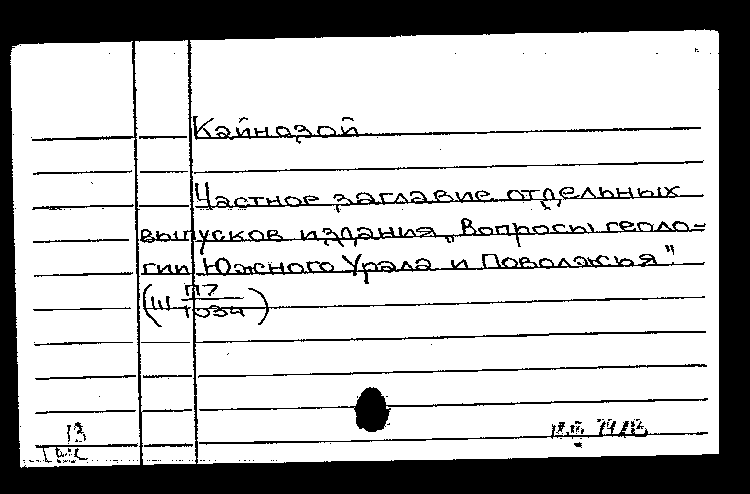 Кайнозой
Частное заглавие отдельных
выпусков издания „Вопросы геоло-
гии Южного Урала и Поволжья"
(Ш П7
1034)
13